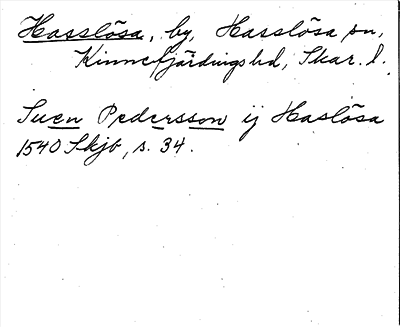 Hasslösa, by, Hasslösa sn,
Kinnefjärdings hd, Skar. l.
Suen Pedersson ij Haslösa
1540 Skjb, s. 34.